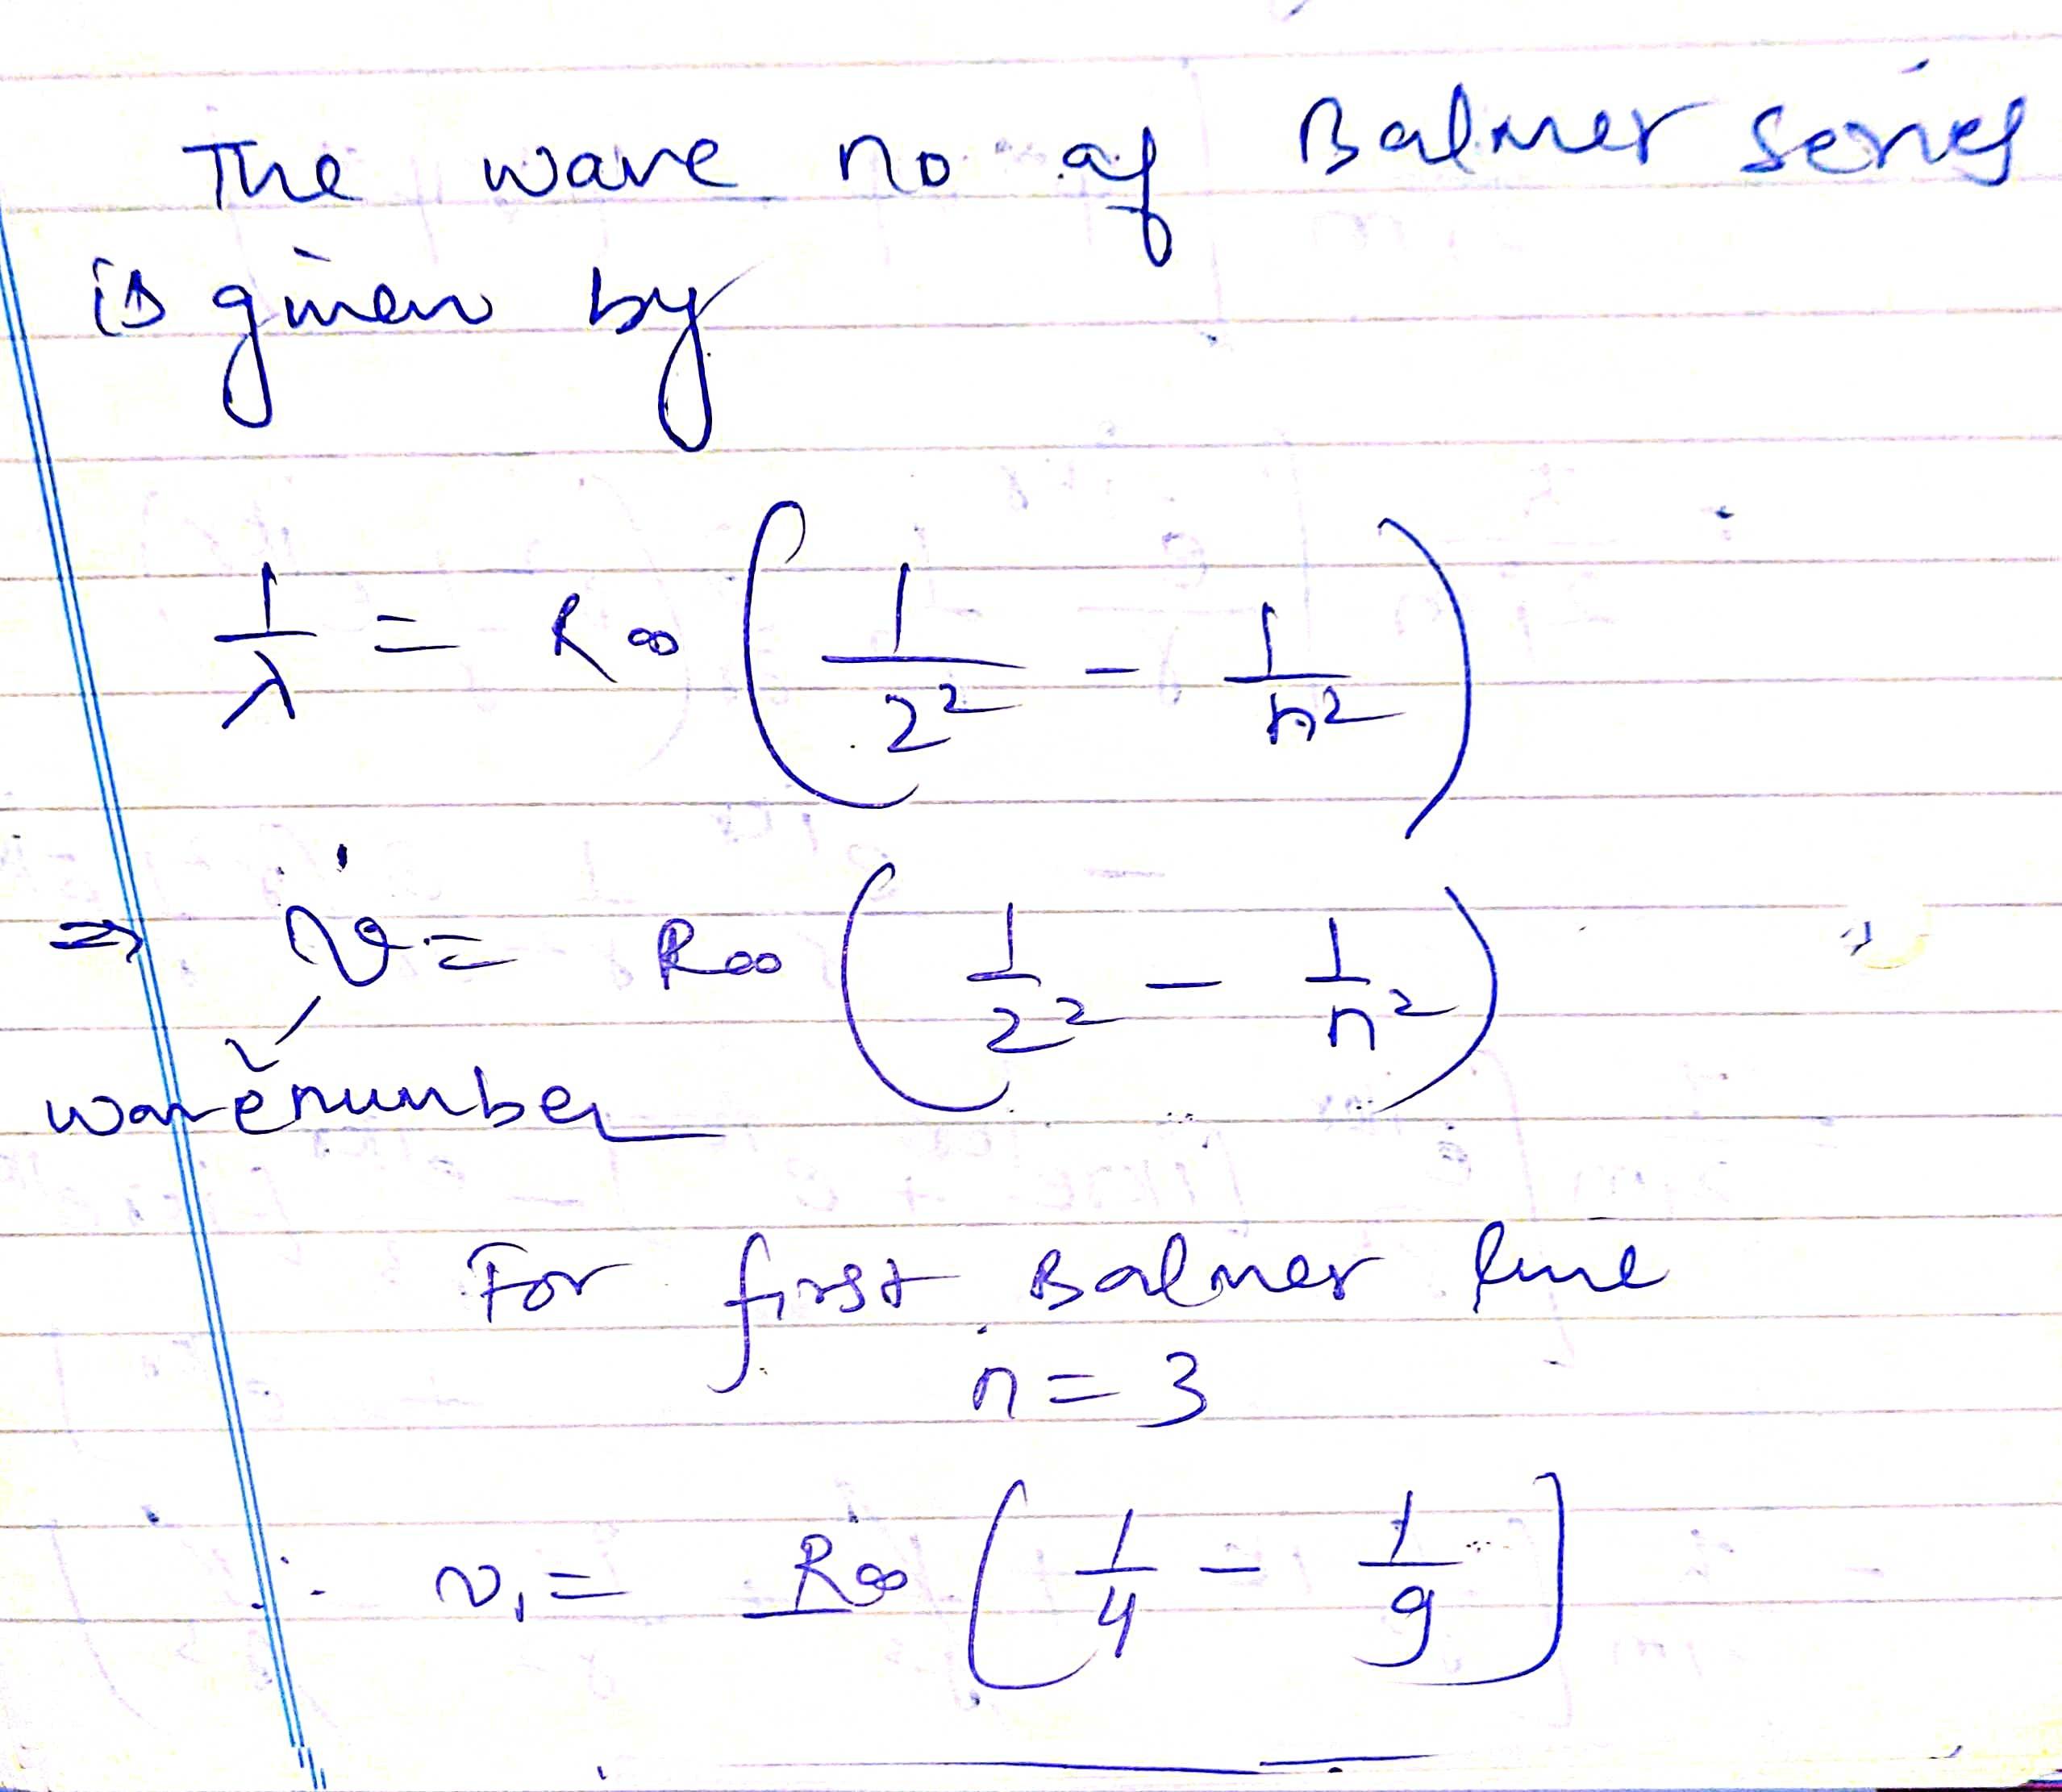 The wave no of Balmer series
is given by
1/λ = R∞ (1/2² - 1/n²)
⇒ ν = R∞ (1/2² - 1/n²)
wavenumber
For first Balmer line
n = 3
∴ ν₁ = R∞ [1/4 - 1/9]